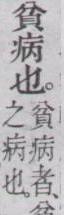 貧病也。
貧病者、
之病也。